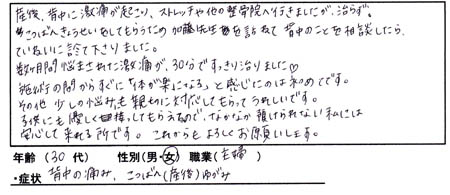 産後、背中に激痛が起こり、ストレッチや他の整骨院へ行きましたが、治らず。
こつばんきょうせいをしてもらうため加藤先生を訪ねて背中のことを相談したら、
ていねいに診て下さりました。
数ヶ月間悩まされた激痛が、30分ですっきり治りました♡
施術の間からすぐに「体が楽になる」と感じたのは初めてです。
その他 少しの小悩みも親切に対応してもらってうれしいです。
子供にも優しく接してもらえるので、なかなか預けられない私には
安心して来れる所です。これからもよろしくお願いします。
年齢 (30 代) 性別(男・女) 職業(主婦)
・症状 背中の痛み、こつばん(産後)ゆがみ